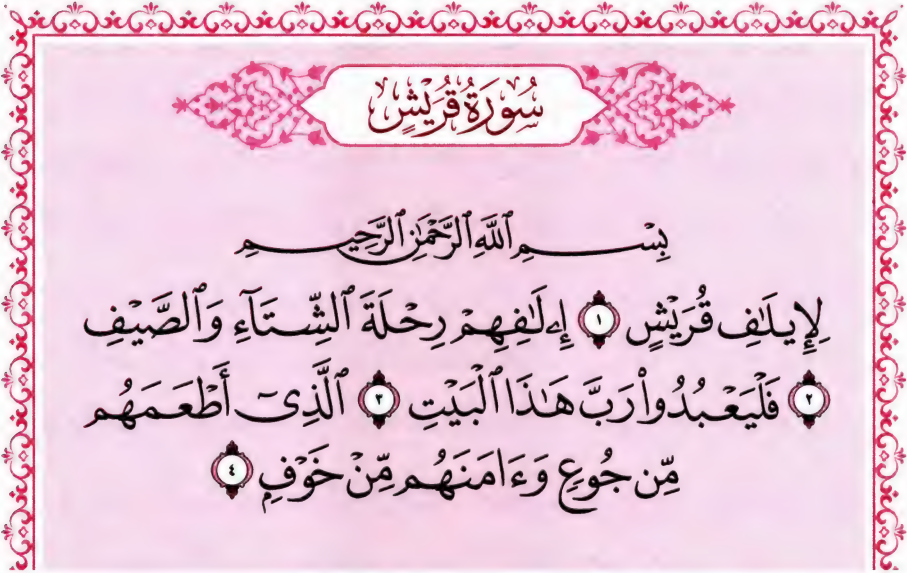 سُورَةُ قُرَيْشٍ
بِسْمِ ٱللَّهِ ٱلرَّحْمَٰنِ ٱلرَّحِيمِ
لِإِيلَٰفِ قُرَيْشٍ ١ إِۦلَٰفِهِمْ رِحْلَةَ ٱلشِّتَآءِ وَٱلصَّيْفِ
٢ فَلْيَعْبُدُوا۟ رَبَّ هَٰذَا ٱلْبَيْتِ ٣ ٱلَّذِىٓ أَطْعَمَهُم
مِّن جُوعٍ وَءَامَنَهُم مِّنْ خَوْفٍ ٤